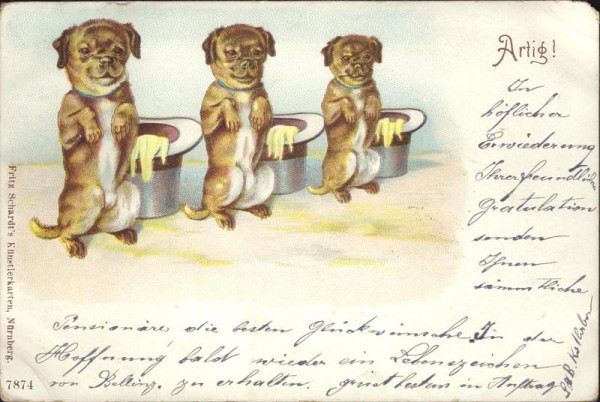 Artig!
In
höflicher
Erwiederung
Ihrer freundlichen
Gratulation
senden
Ihnen
sämmtliche
Pensionäre die besten Glückwünsche. In der
Hoffnung bald wieder ein Lebenszeichen
von Belling. zu erhalten. grüsst bestens im Auftrag
Fritz Schardt's Künstlerkarten, Nürnberg.
7874